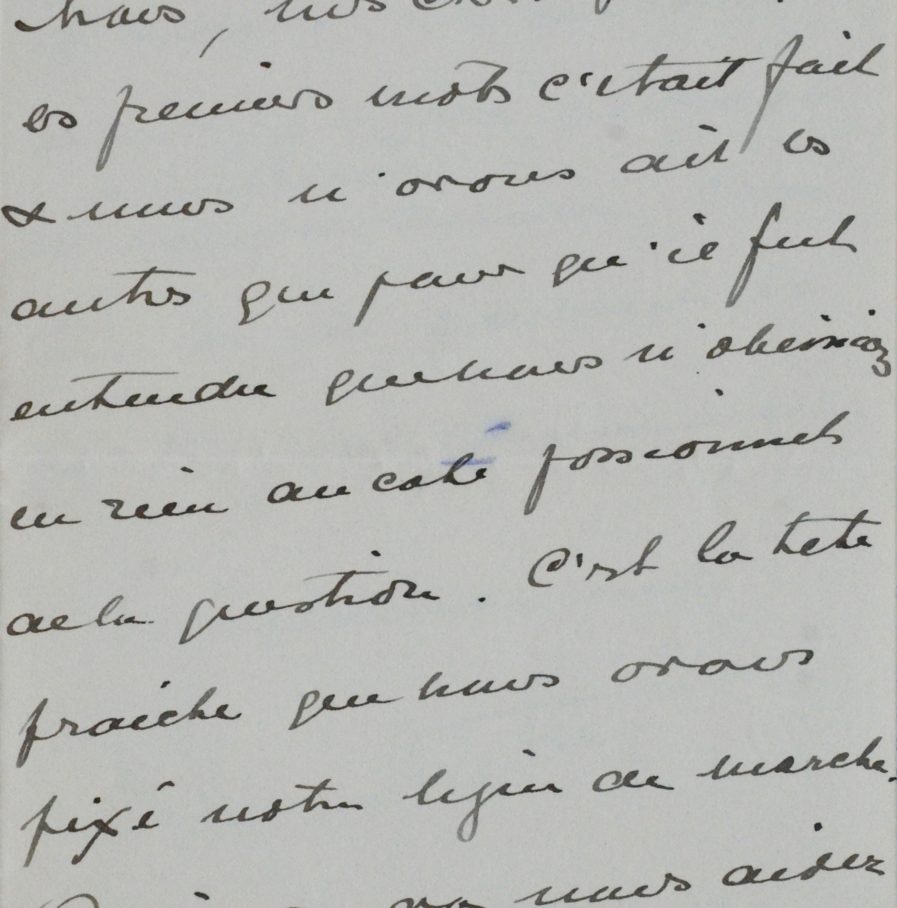 nous, nos
les premiers mots c'était fait
& nous n'avons dit les
autres que pour qu'il fut
entendu que nous n'obéissions
en rien au coté passionnel
de la question. C'est la tete
fraiche que nous avons
fixé notre ligne de marche.
nous aider